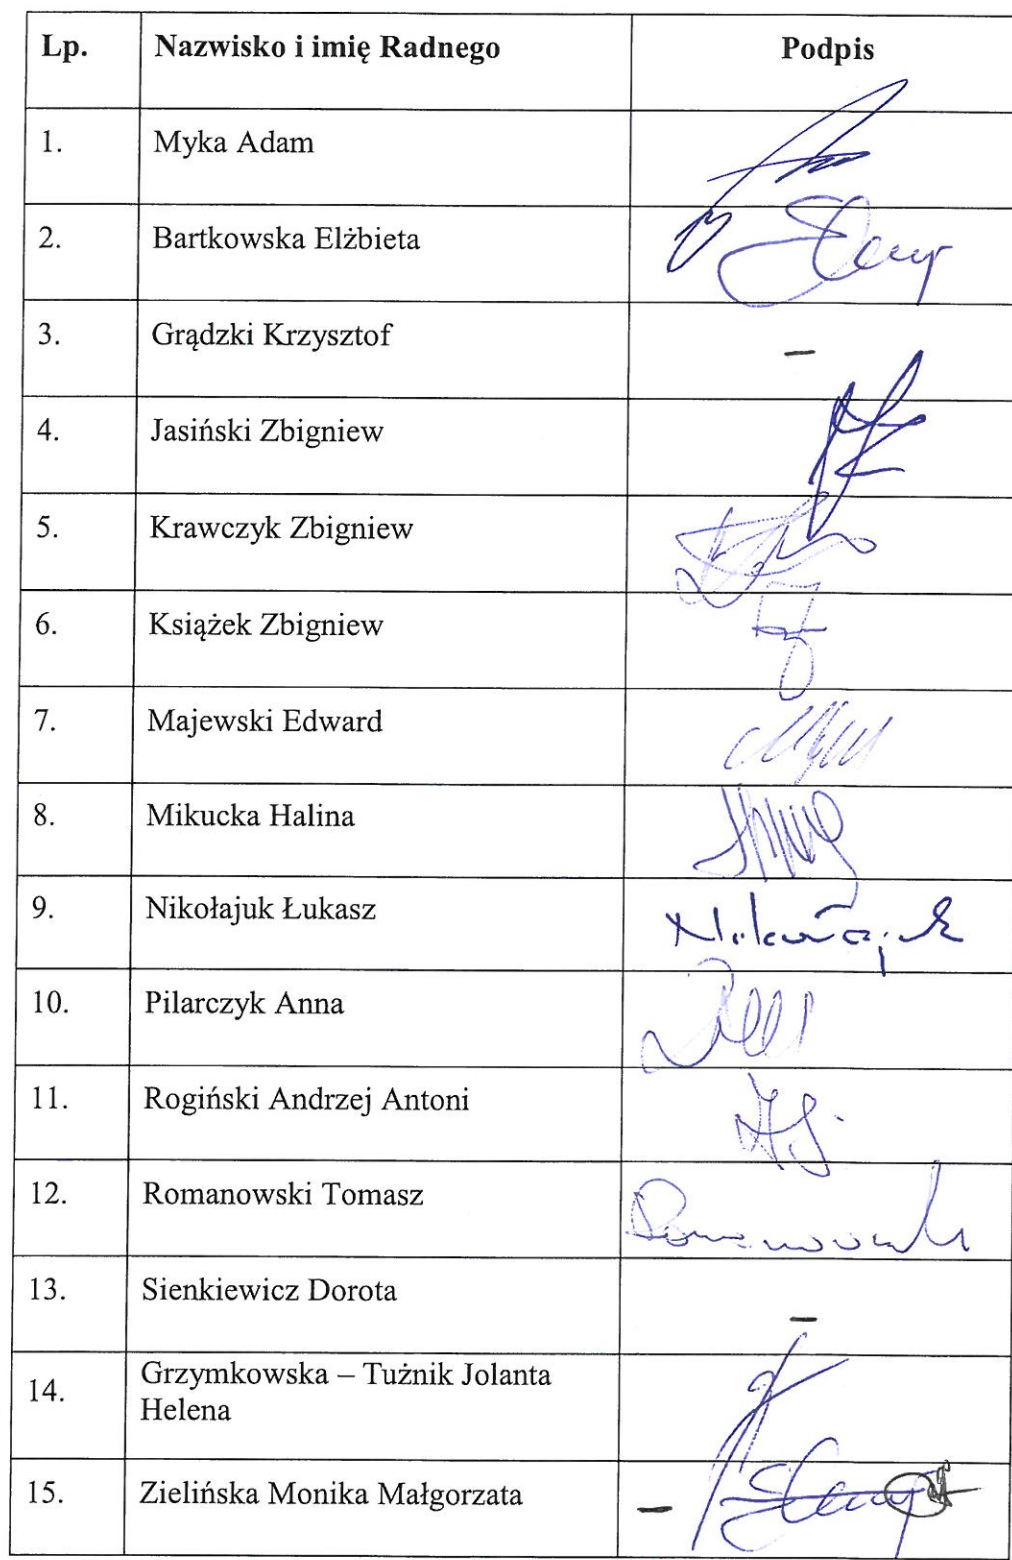 Lp. Nazwisko i imię Radnego Podpis
1. Myka Adam
2. Bartkowska Elżbieta
3. Grądzki Krzysztof –
4. Jasiński Zbigniew
5. Krawczyk Zbigniew
6. Książek Zbigniew
7. Majewski Edward
8. Mikucka Halina
9. Nikołajuk Łukasz
10. Pilarczyk Anna
11. Rogiński Andrzej Antoni
12. Romanowski Tomasz
13. Sienkiewicz Dorota –
14. Grzymkowska – Tuźnik Jolanta
Helena
15. Zielińska Monika Małgorzata –